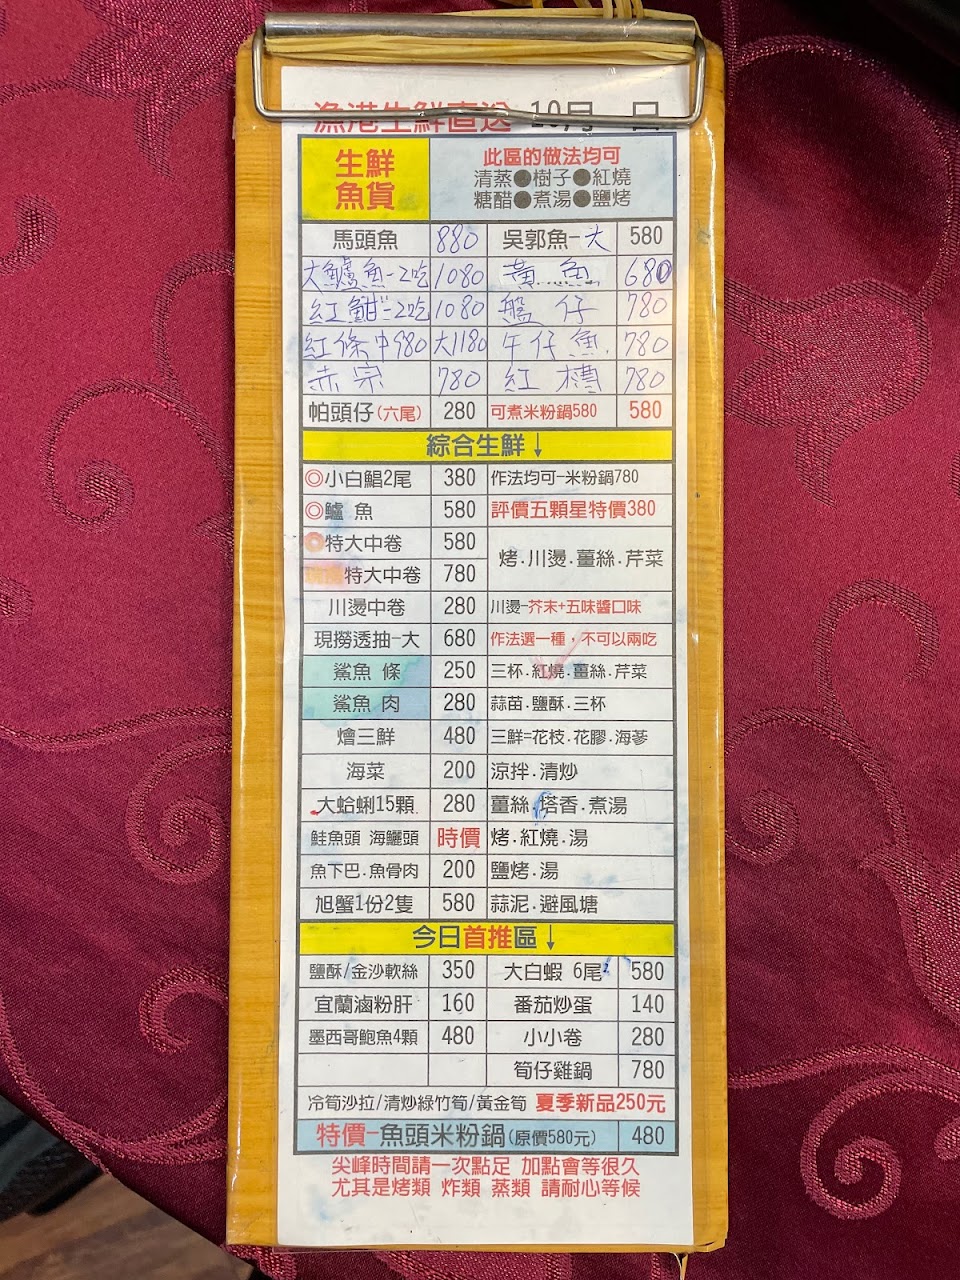 漁港生鮮直送 10月 日
生鮮
魚貨
此區的做法均可
清蒸●樹子●紅燒
糖醋●煮湯●鹽烤
馬頭魚 880 吳郭魚-大 580
大鱸魚-2吃 1080 黃魚 680
紅魽-2吃 1080 盤仔 780
紅條中980 大1180 午仔魚 780
赤宗 780 紅糟 780
帕頭仔(六尾) 280 可煮米粉鍋580 580
綜合生鮮↓
◎小白鯧2尾 380 作法均可-米粉鍋780
◎鱸魚 580 評價五顆星特價380
特大中卷 580 烤.川燙.薑絲.芹菜
特大中卷 780
川燙中卷 280 川燙-芥末+五味醬口味
現撈透抽-大 680 作法選一種,不可以兩吃
鯊魚 條 250 三杯.紅燒.薑絲.芹菜
鯊魚 肉 280 蒜苗.鹽酥.三杯
燴三鮮 480 三鮮=花枝.花膠.海蔘
海菜 200 涼拌.清炒
大蛤蜊15顆 280 薑絲.塔香.煮湯
鮭魚頭 海鱺頭 時價 烤.紅燒.湯
魚下巴.魚骨肉 200 鹽烤.湯
旭蟹1份2隻 580 蒜泥.避風塘
今日首推區↓
鹽酥/金沙軟絲 350 大白蝦 6尾 580
宜蘭滷粉肝 160 番茄炒蛋 140
墨西哥鮑魚4顆 480 小小卷 280
筍仔雞鍋 780
冷筍沙拉/清炒綠竹筍/黃金筍 夏季新品250元
特價-魚頭米粉鍋(原價580元) 480
尖峰時間請一次點足 加點會等很久
尤其是烤類 炸類 蒸類 請耐心等候